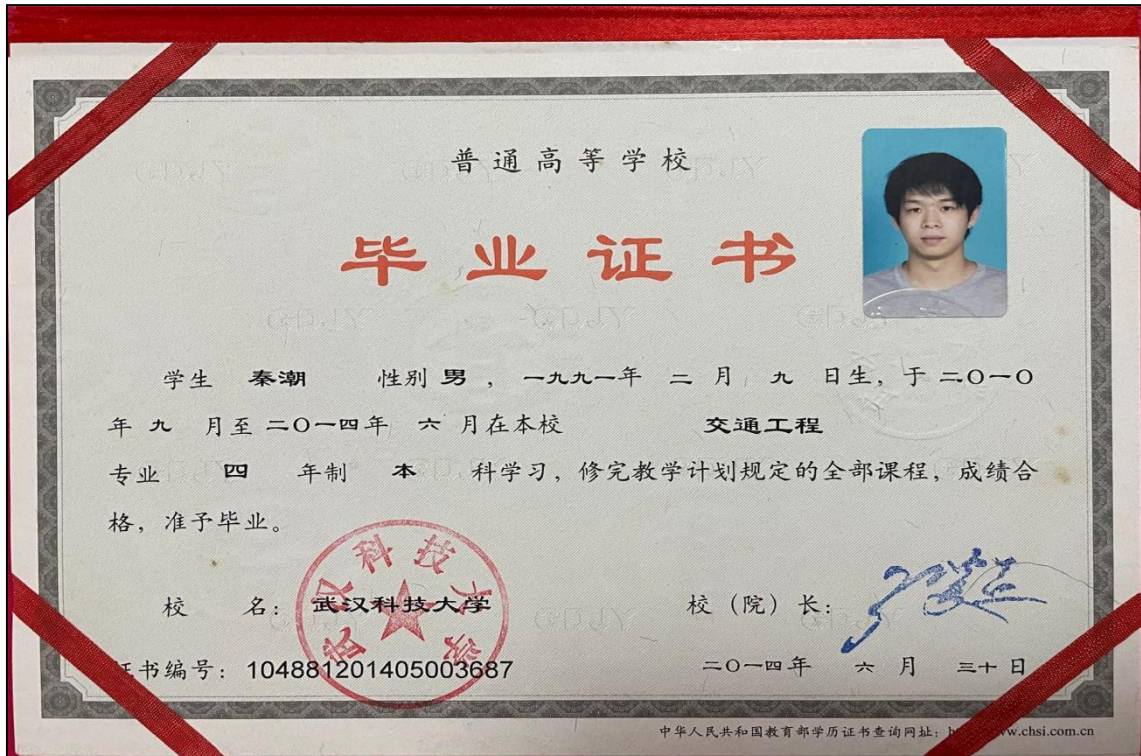 普通高等学校
毕业证书
学生 秦潮 性别 男 ，一九九一年 二 月 九 日生，于 二〇一〇
年 九 月至 二〇一四年 六 月在本校 交通工程
专业 四 年制 本 科学习，修完教学计划规定的全部课程，成绩合
格，准予毕业。
校 名：武汉科技大学
武汉科技大学
校（院）长：
书编号：104881201405003687
二〇一四年 六 月 三十日
中华人民共和国教育部学历证书查询网址：w.chsi.com.cn